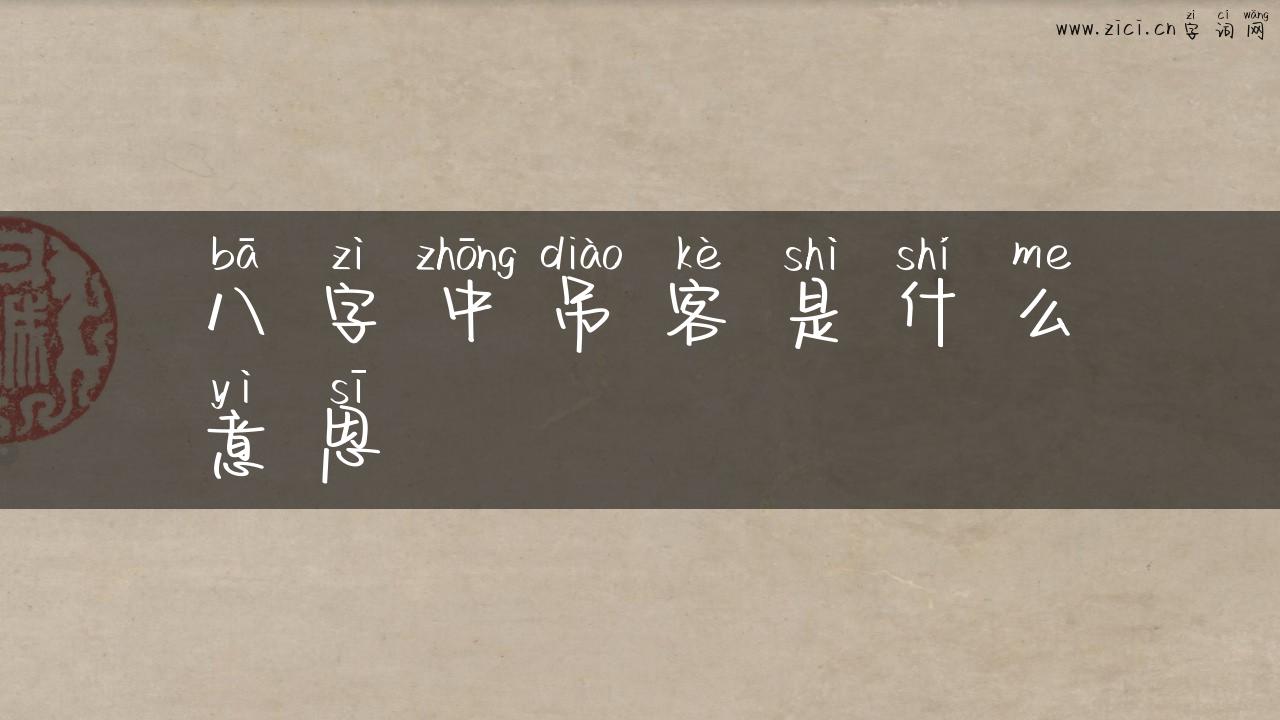 zì cí wǎng
www.zici.cn 字词网
bā zì zhōng diào kè shì shí me
八字中吊客是什么
yì sī
意思